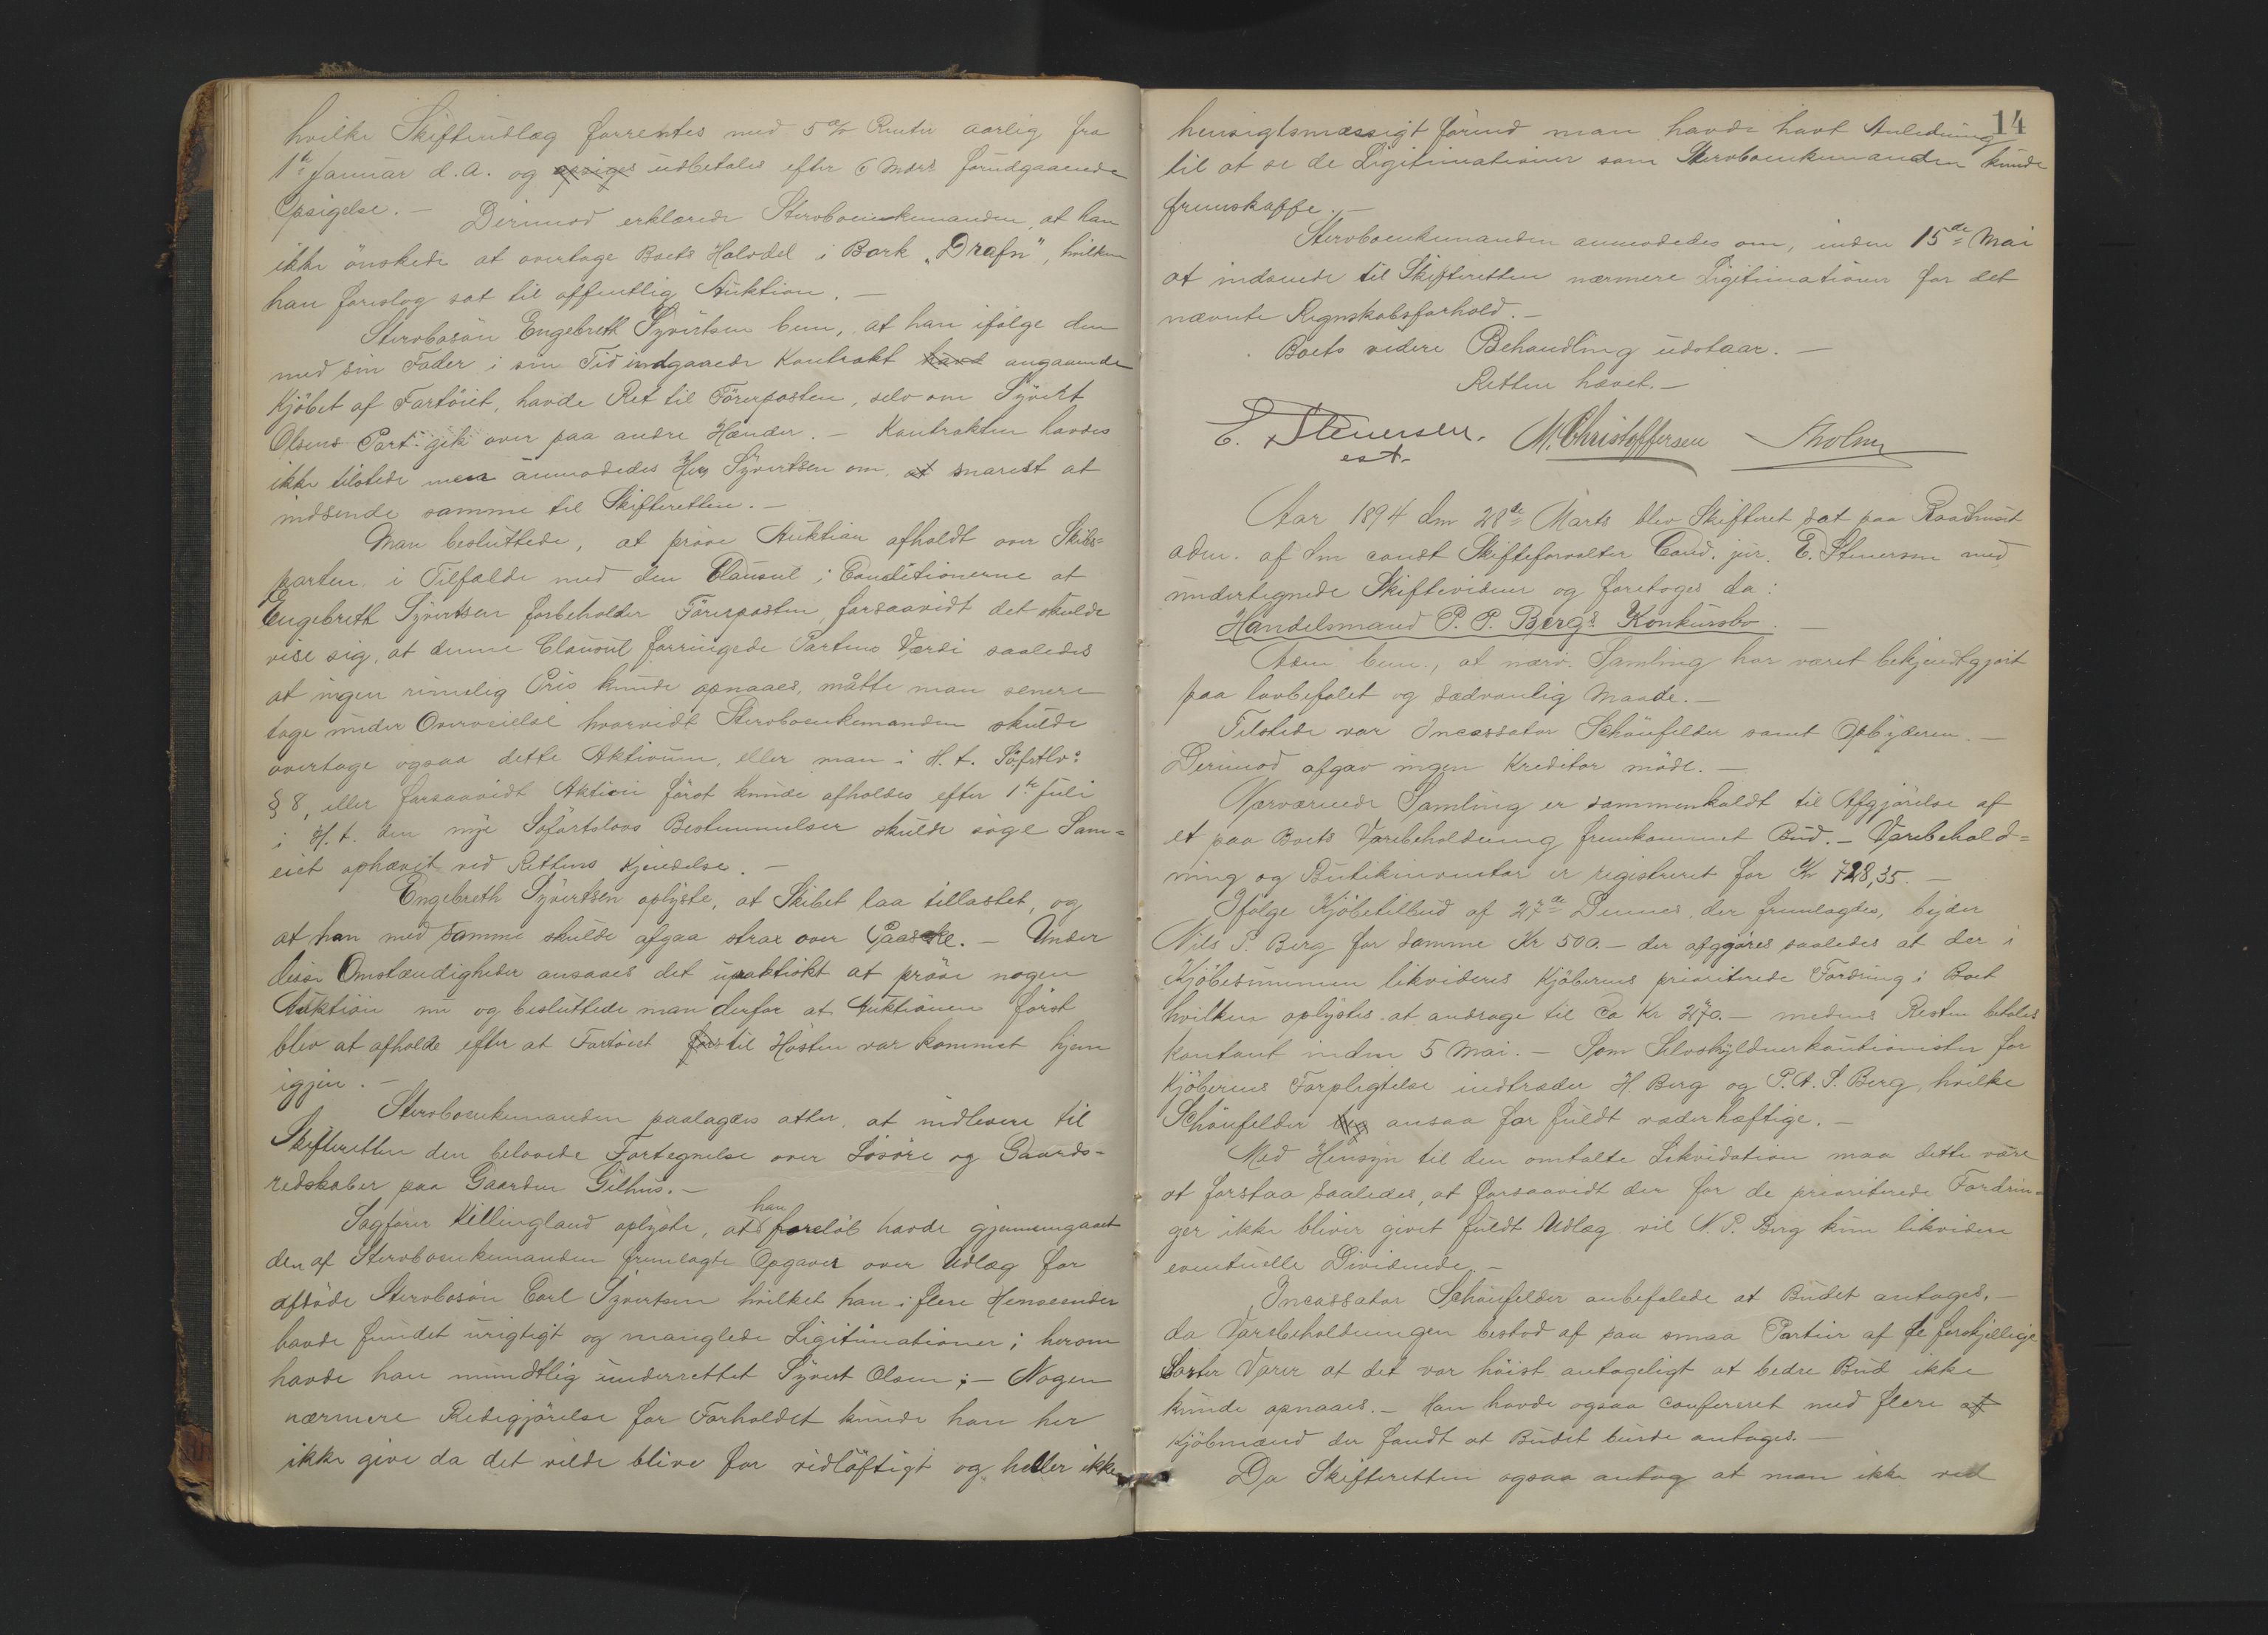 hvilke Skifteudlæg forrentes med 5 % Renter aarlig fra
1ste Januar d.A. og opsiges udbetales efter 6 Mdrs forudgaaende
Opsigelse. — Derimod erklærede Stervboenkemanden, at han
ikke önskede at overtage Boets Halvdel i Bark „Drafn", hvilken
han foreslog sat til offentlig Auktion. —
Stervbosön Engebreth Syvertsen bem., at han ifölge den
med sin Fader i sin Tid indgaaede Kontrakt havd angaaende
Kjöbet af Fartöiet, havde Ret til Förerposten, selv om Syvert
Olsens Part gik over paa andre Hænder. — Kontrakten havdes
ikke tilstede men anmodedes Hr. Syvertsen om at snarest at
indsende samme til Skifteretten. —
Man besluttede, at pröve Auktion afholdt over Skibs=
parten i Tilfælde med den Clausul i Conditionerne at
Engebreth Syvertsen forbeholder Förerposten, forsaavidt det skulde
vise sig, at denne Clausul forringede Partens Værdi saaledes
at ingen rimelig Pris kunde opnaaes, måtte man senere
tage under Overveielse hvorvidt Stervboenkemanden skulde
overtage ogsaa dette Aktivum, eller man i H. t. Söfrtlv:
§ 8, eller forsaavidt Aktion först kunde afholdes efter 1ste Juli
i H. t. den nye Söfartslovs Bestemmelser skulde söge Sam=
eiet ophævet ved Rettens Kjendelse. —
Engebreth Syvertsen oplyste, at Skibet laa tillastet, og
at han med samme skulde afgaa strax over Paaske. — Under
disse Omstændigheder ansaaes det upraktiskt at pröve nogen
Auktion nu og besluttede man derfor at Auktionen först
blev at afholde efter at Fartöiet för til Hösten var kommet hjem
igjen. —
Stervboenkemanden paalagdes atter, at indlevere til
Skifteretten den belovede Fortegnelse over Lösöre og Gaards-
redskaber paa Gaarden Gilhus. —
Sagförer Killingland oplyste, at han foreløb havde gjennemgaaet
den af Stervboenkemanden fremlagte Opgaver over Udlæg for
afdöde Stervbosön Carl Syvertsen hvilket han i flere Henseender
havde fundet urigtigt og manglede Ligitimationer; herom
havde han mundtlig underrettet Syvert Olsen; — Nogen
nærmere Redegjörelse for Forholdet kunde han her
ikke give da det vilde blive for vidlöftigt og heller ikke
14
hensigtsmæssigt förend man havde havt Anledning
til at se de Ligitimationer som Stervboenkemanden kunde
fremskaffe. —
Stervboenkemanden anmodedes om, inden 15de Mai
at indsende til Skifteretten nærmere Ligitimationer for det
nævnte Regnskabsforhold. —
Boets videre Behandling udstaar. —
Retten hævet. —
E. Stenersen. M. Christoffersen Holm
cst.
Aar 1894 den 28de Marts blev Skifteret sat paa Raadhuset
adm. af den const Skifteforvalter Cand. jur. E. Stenersen med
undertegnede Skiftevidner og foretoges da:
Handelsmand P. P. Bergs Konkursbo. —
Adm bem., at nærv. Samling har været bekjendtgjort
paa lovbefalet og sædvanlig Maade. —
Tilstede var Incassator Schönfelder samt Opbyderen. —
Derimod afgav ingen Kreditor möde. —
Nærværende Samling er sammenkaldt til Afgjörelse af
et paa Boets Varebeholdning fremkommet Bud. — Varebehold=
ning og Butikinventar er registreret for Kr 728,35. —
Ifölge Kjöbetilbud af 27de Dennes, der fremlagdes, byder
Nils P. Berg for samme Kr 500. — der afgjöres saaledes at der i
Kjöbesummen likvideres Kjöberens prioriterede Fordring i Boet
hvilken oplystes at andrage til ca Kr 270. — medens Resten betales
kontant inden 5 Mai. — Som Selvskyldnerkautionister for
Kjöberens Forpligtelse indtræder H. Berg og P. A. S. Berg, hvilke
Schönfelder ansaa for fuldt vederhæftige. —
Med Hensyn til den omtalte Likvidation maa dette være
at forstaa saaledes, at forsaavidt der for de prioriterede Fordrin=
ger ikke bliver givet fuldt Udlæg vil N. P. Berg kun likvidere
eventuelle Dividende. —
Incassator Schönfelder anbefalede at Budet antages, —
da Varebeholdningen bestod af saa smaa Partier af de forskjellige
Sorter Varer at det var höist antageligt at bedre Bud ikke
kunde opnaaes. — Han havde ogsaa confereret med flere af
Kjöbmænd der fandt at Budet burde antages. —
Da Skifteretten ogsaa antog at man ikke ved